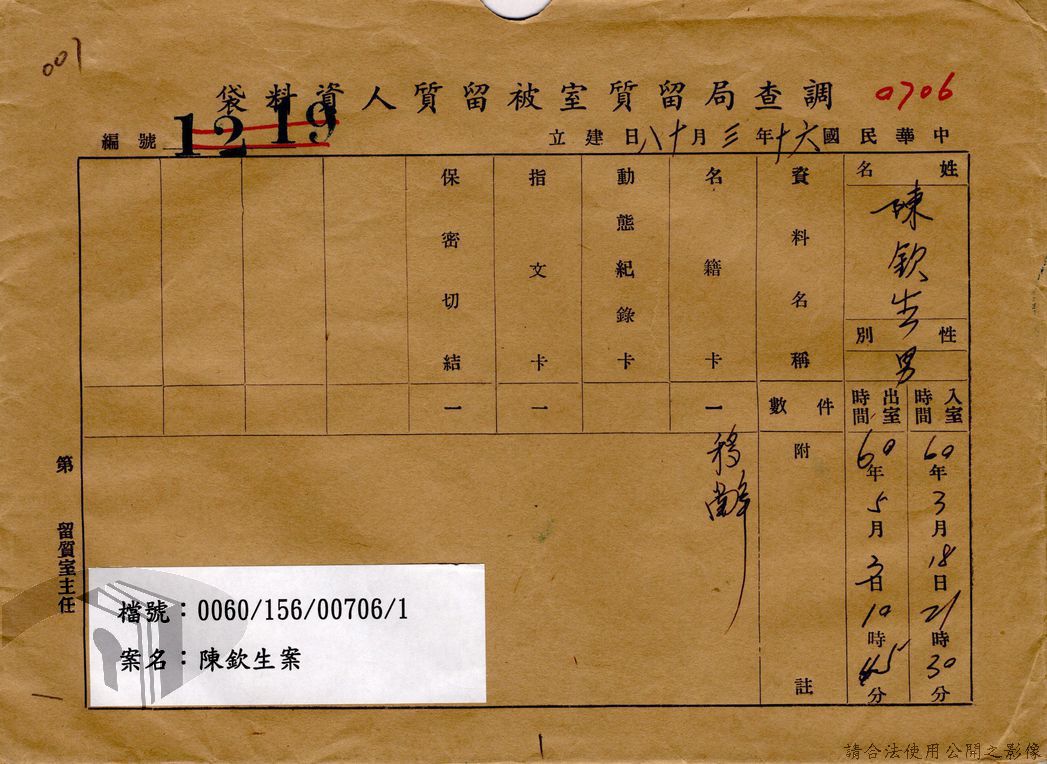 001
調查局留質室被留質人資料袋
0706
中華民國六十年三月十八日建立
編號
12 19
姓名
陳欽生
性別
男
入室時間
60年3月18日21時30分
出室時間
60年5月日10時45分
資料名稱
件數
附註
名籍卡
一
動態紀錄卡
指文卡
一
保密切結
一
移
第
留質室主任
檔號：0060/156/00706/1
案名：陳欽生案
請合法使用公開之影像